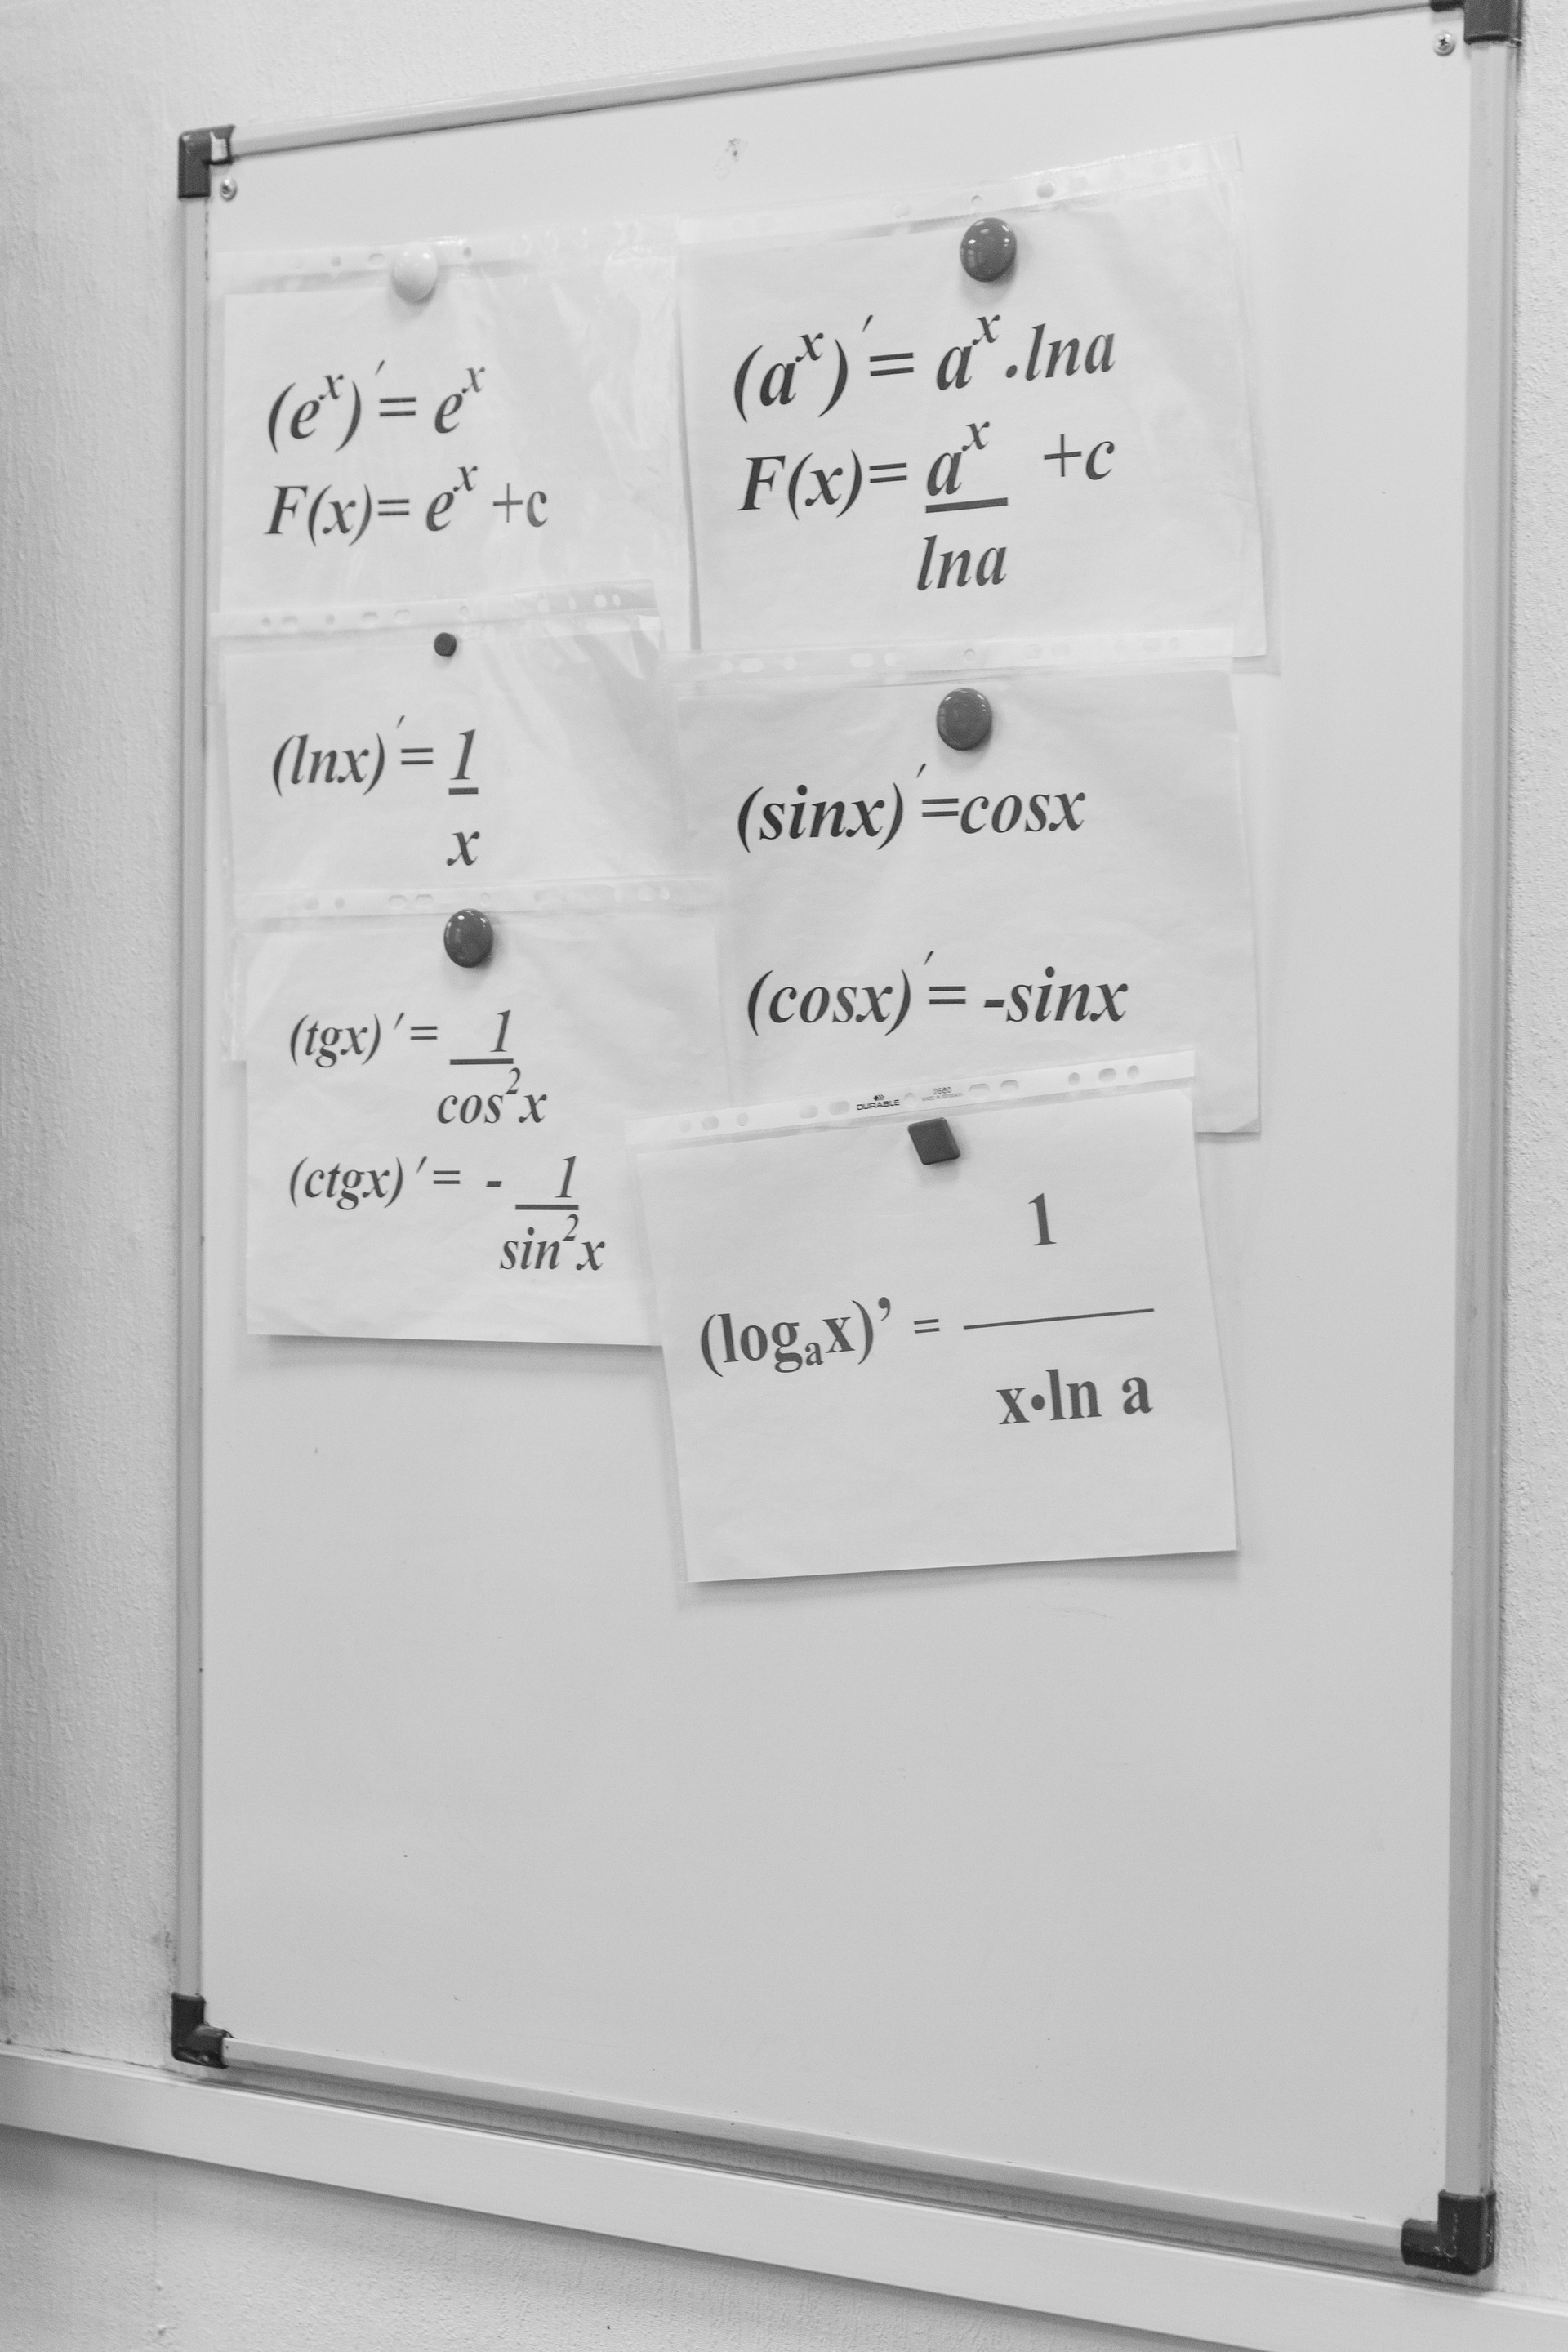 (eˣ)′= eˣ
F(x)= eˣ +c
(aˣ)′= aˣ.lna
F(x)= aˣ +c
lna
(lnx)′= 1
x
(sinx)′=cosx
(cosx)′= -sinx
(tgx)′= 1
cos²x
(ctgx)′= - 1
sin²x
DURABLE 2660
1
(logₐx)’ =
x•ln a